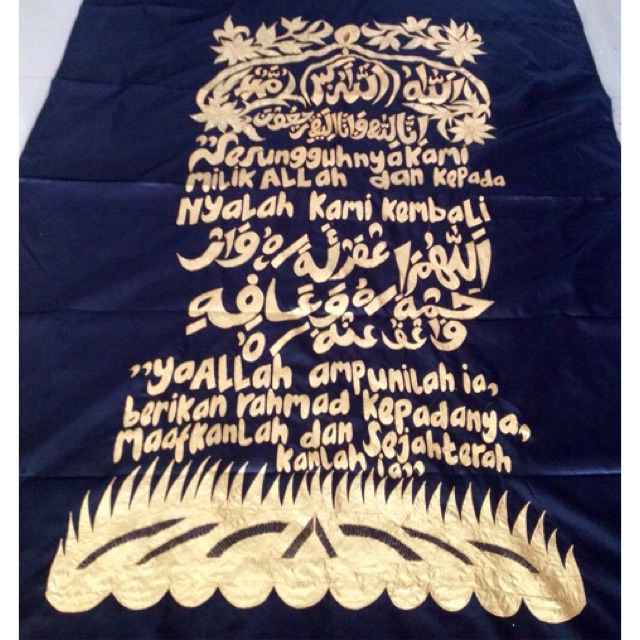 الله الله أكبر محمد
إنا لله وإنا إليه راجعون
"Sesungguhnya kami
miliK ALLah dan Kepada
NyaLah Kami Kembali
اللهم غفرله وار
حمه وعافه
واعف عنه
"ya ALLah ampunilah ia,
berikan rahmad Kepadanya,
MaafKanLah dan Sejahterah
KanLah ia"